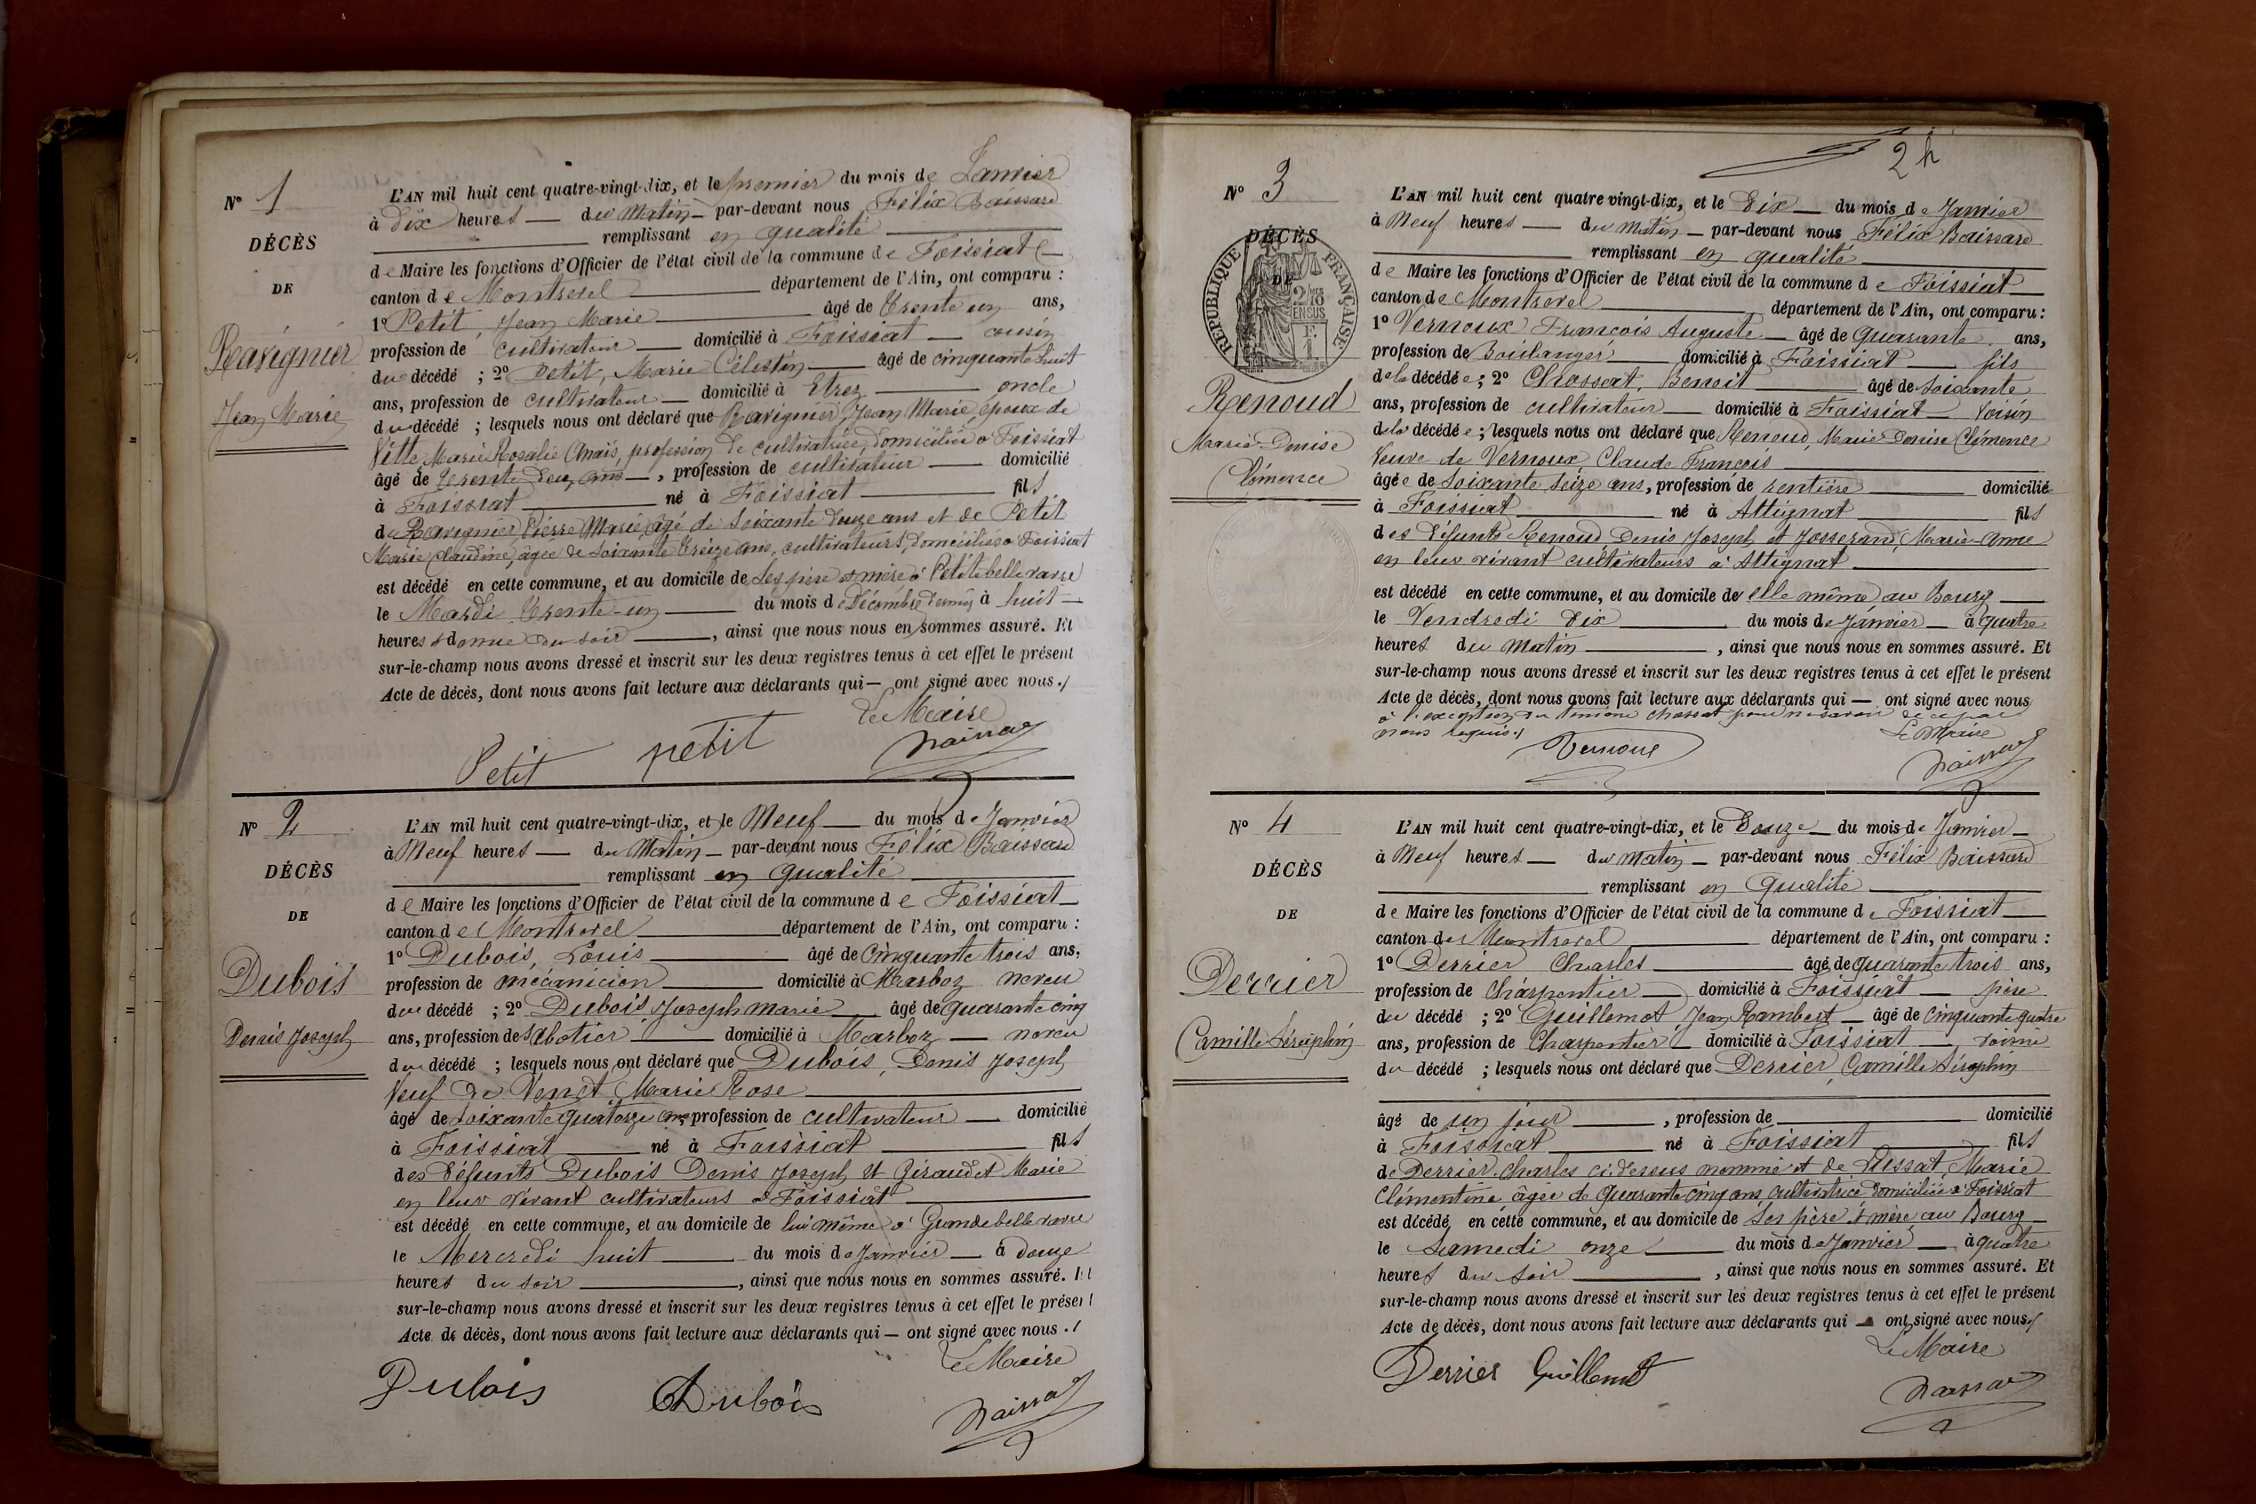 N° 1
DÉCÈS
DE
Ravignier
Jean Marie
L'AN mil huit cent quatre-vingt-dix, et le premier du mois de Janvier
à Dix heures du Matin par-devant nous Félix Baissard
remplissant en qualité
de Maire les fonctions d'Officier de l'état civil de la commune de Foissiat
canton de Montrevel département de l'Ain, ont comparu :
1° Petit, Jean Marie âgé de trente un ans,
profession de cultivateur domicilié à Foissiat cousin
du décédé ; 2° Petit, Marie Célestin âgé de cinquante huit
ans, profession de cultivateur domicilié à Etrez oncle
du décédé ; lesquels nous ont déclaré que Ravignier, Jean Marie, époux de
Vitte, Marie Rosalie Anaïs, profession de cultivatrice, domiciliée à Foissiat
âgé de trente deux ans, profession de cultivateur domicilié
à Foissiat né à Foissiat fils
de Ravignier Pierre Marie, âgé de soixante douze ans et de Petit
Marie Claudine, âgée de soixante treize ans, cultivateurs, domiciliés à Foissiat
est décédé en cette commune, et au domicile de ses père et mère à Petitebellevavre
le Mardi trente-un du mois de Décembre dernier à huit
heures & demie du soir, ainsi que nous nous en sommes assuré. Et
sur-le-champ nous avons dressé et inscrit sur les deux registres tenus à cet effet le présent
Acte de décès, dont nous avons fait lecture aux déclarants qui ont signé avec nous./
Le Maire
Petit petit Baissard
N° 2
DÉCÈS
DE
Dubois
Denis Joseph
L'AN mil huit cent quatre-vingt-dix, et le Neuf du mois de Janvier
à Neuf heures du Matin par-devant nous Félix Baissard
remplissant en qualité
de Maire les fonctions d'Officier de l'état civil de la commune de Foissiat
canton de Montrevel département de l'Ain, ont comparu :
1° Dubois, Louis âgé de cinquante trois ans,
profession de mécanicien domicilié à Marboz neveu
du décédé ; 2° Dubois Joseph marie âgé de quarante cinq
ans, profession de Sabotier domicilié à Marboz neveu
du décédé ; lesquels nous ont déclaré que Dubois, Denis Joseph
Veuf de Venet Marie Rose
âgé de soixante quatorze ans, profession de cultivateur domicilié
à Foissiat né à Foissiat fils
des défunts Dubois Denis Joseph et Giraudet Marie
en leur vivant cultivateurs à Foissiat
est décédé en cette commune, et au domicile de lui même à Grandebellevavre
le Mercredi huit du mois de Janvier à douze
heures du soir, ainsi que nous nous en sommes assuré. Et
sur-le-champ nous avons dressé et inscrit sur les deux registres tenus à cet effet le présent
Acte de décès, dont nous avons fait lecture aux déclarants qui ont signé avec nous./
Le Maire
Dubois Dubois Baissard
N° 3
DÉCÈS
DE
RÉPUBLIQUE FRANÇAISE
2/10
EN SUS
Renoud
Marie Denise
Clémence
L'AN mil huit cent quatre vingt-dix, et le Dix du mois de Janvier
à Neuf heures du Matin par-devant nous Félix Baissard
remplissant en qualité
de Maire les fonctions d'Officier de l'état civil de la commune de Foissiat
canton de Montrevel département de l'Ain, ont comparu :
1° Vernoux François Auguste âgé de Quarante ans,
profession de Boulanger domicilié à Foissiat fils
de la décédée ; 2° Chossat, Benoit âgé de soixante
ans, profession de cultivateur domicilié à Foissiat voisin
de la décédée ; lesquels nous ont déclaré que Renoud, Marie Denise Clémence
Veuve de Vernoux, Claude François
âgée de soixante seize ans, profession de rentière domiciliée
à Foissiat né à Attignat fils
des défunts Renoud Denis Joseph et Josserand, Marie-Anne
en leur vivant cultivateurs à Attignat
est décédé en cette commune, et au domicile de elle même au Bourg
le Vendredi dix du mois de Janvier à quatre
heures du matin, ainsi que nous nous en sommes assuré. Et
sur-le-champ nous avons dressé et inscrit sur les deux registres tenus à cet effet le présent
Acte de décès, dont nous avons fait lecture aux déclarants qui ont signé avec nous
à l'exception du témoin Chossat pour ne savoir de ce par
nous requis./ Le Maire
Vernoux Baissard
N° 4
DÉCÈS
DE
Derrier
Camille Séraphin
L'AN mil huit cent quatre-vingt-dix, et le Douze du mois de Janvier
à Neuf heures du matin par-devant nous Félix Baissard
remplissant en qualité
de Maire les fonctions d'Officier de l'état civil de la commune de Foissiat
canton de Montrevel département de l'Ain, ont comparu :
1° Derrier Charles âgé de quarante trois ans,
profession de Charpentier domicilié à Foissiat père
du décédé ; 2° Guillemot Jean Rambert âgé de cinquante quatre
ans, profession de Charpentier domicilié à Foissiat voisin
du décédé ; lesquels nous ont déclaré que Derrier, Camille Séraphin
âgé de un jour, profession de domicilié
à Foissiat né à Foissiat fils
de Derrier Charles ci dessus nommé et de Marie
Clémentine âgée de Quarante cinq ans cultivatrice domiciliée à Foissiat
est décédé en cette commune, et au domicile de ses père & mère au Bourg
le Samedi onze du mois de Janvier à quatre
heures du soir, ainsi que nous nous en sommes assuré. Et
sur-le-champ nous avons dressé et inscrit sur les deux registres tenus à cet effet le présent
Acte de décès, dont nous avons fait lecture aux déclarants qui ont signé avec nous./
Le Maire
Derrier Guillemot Baissard